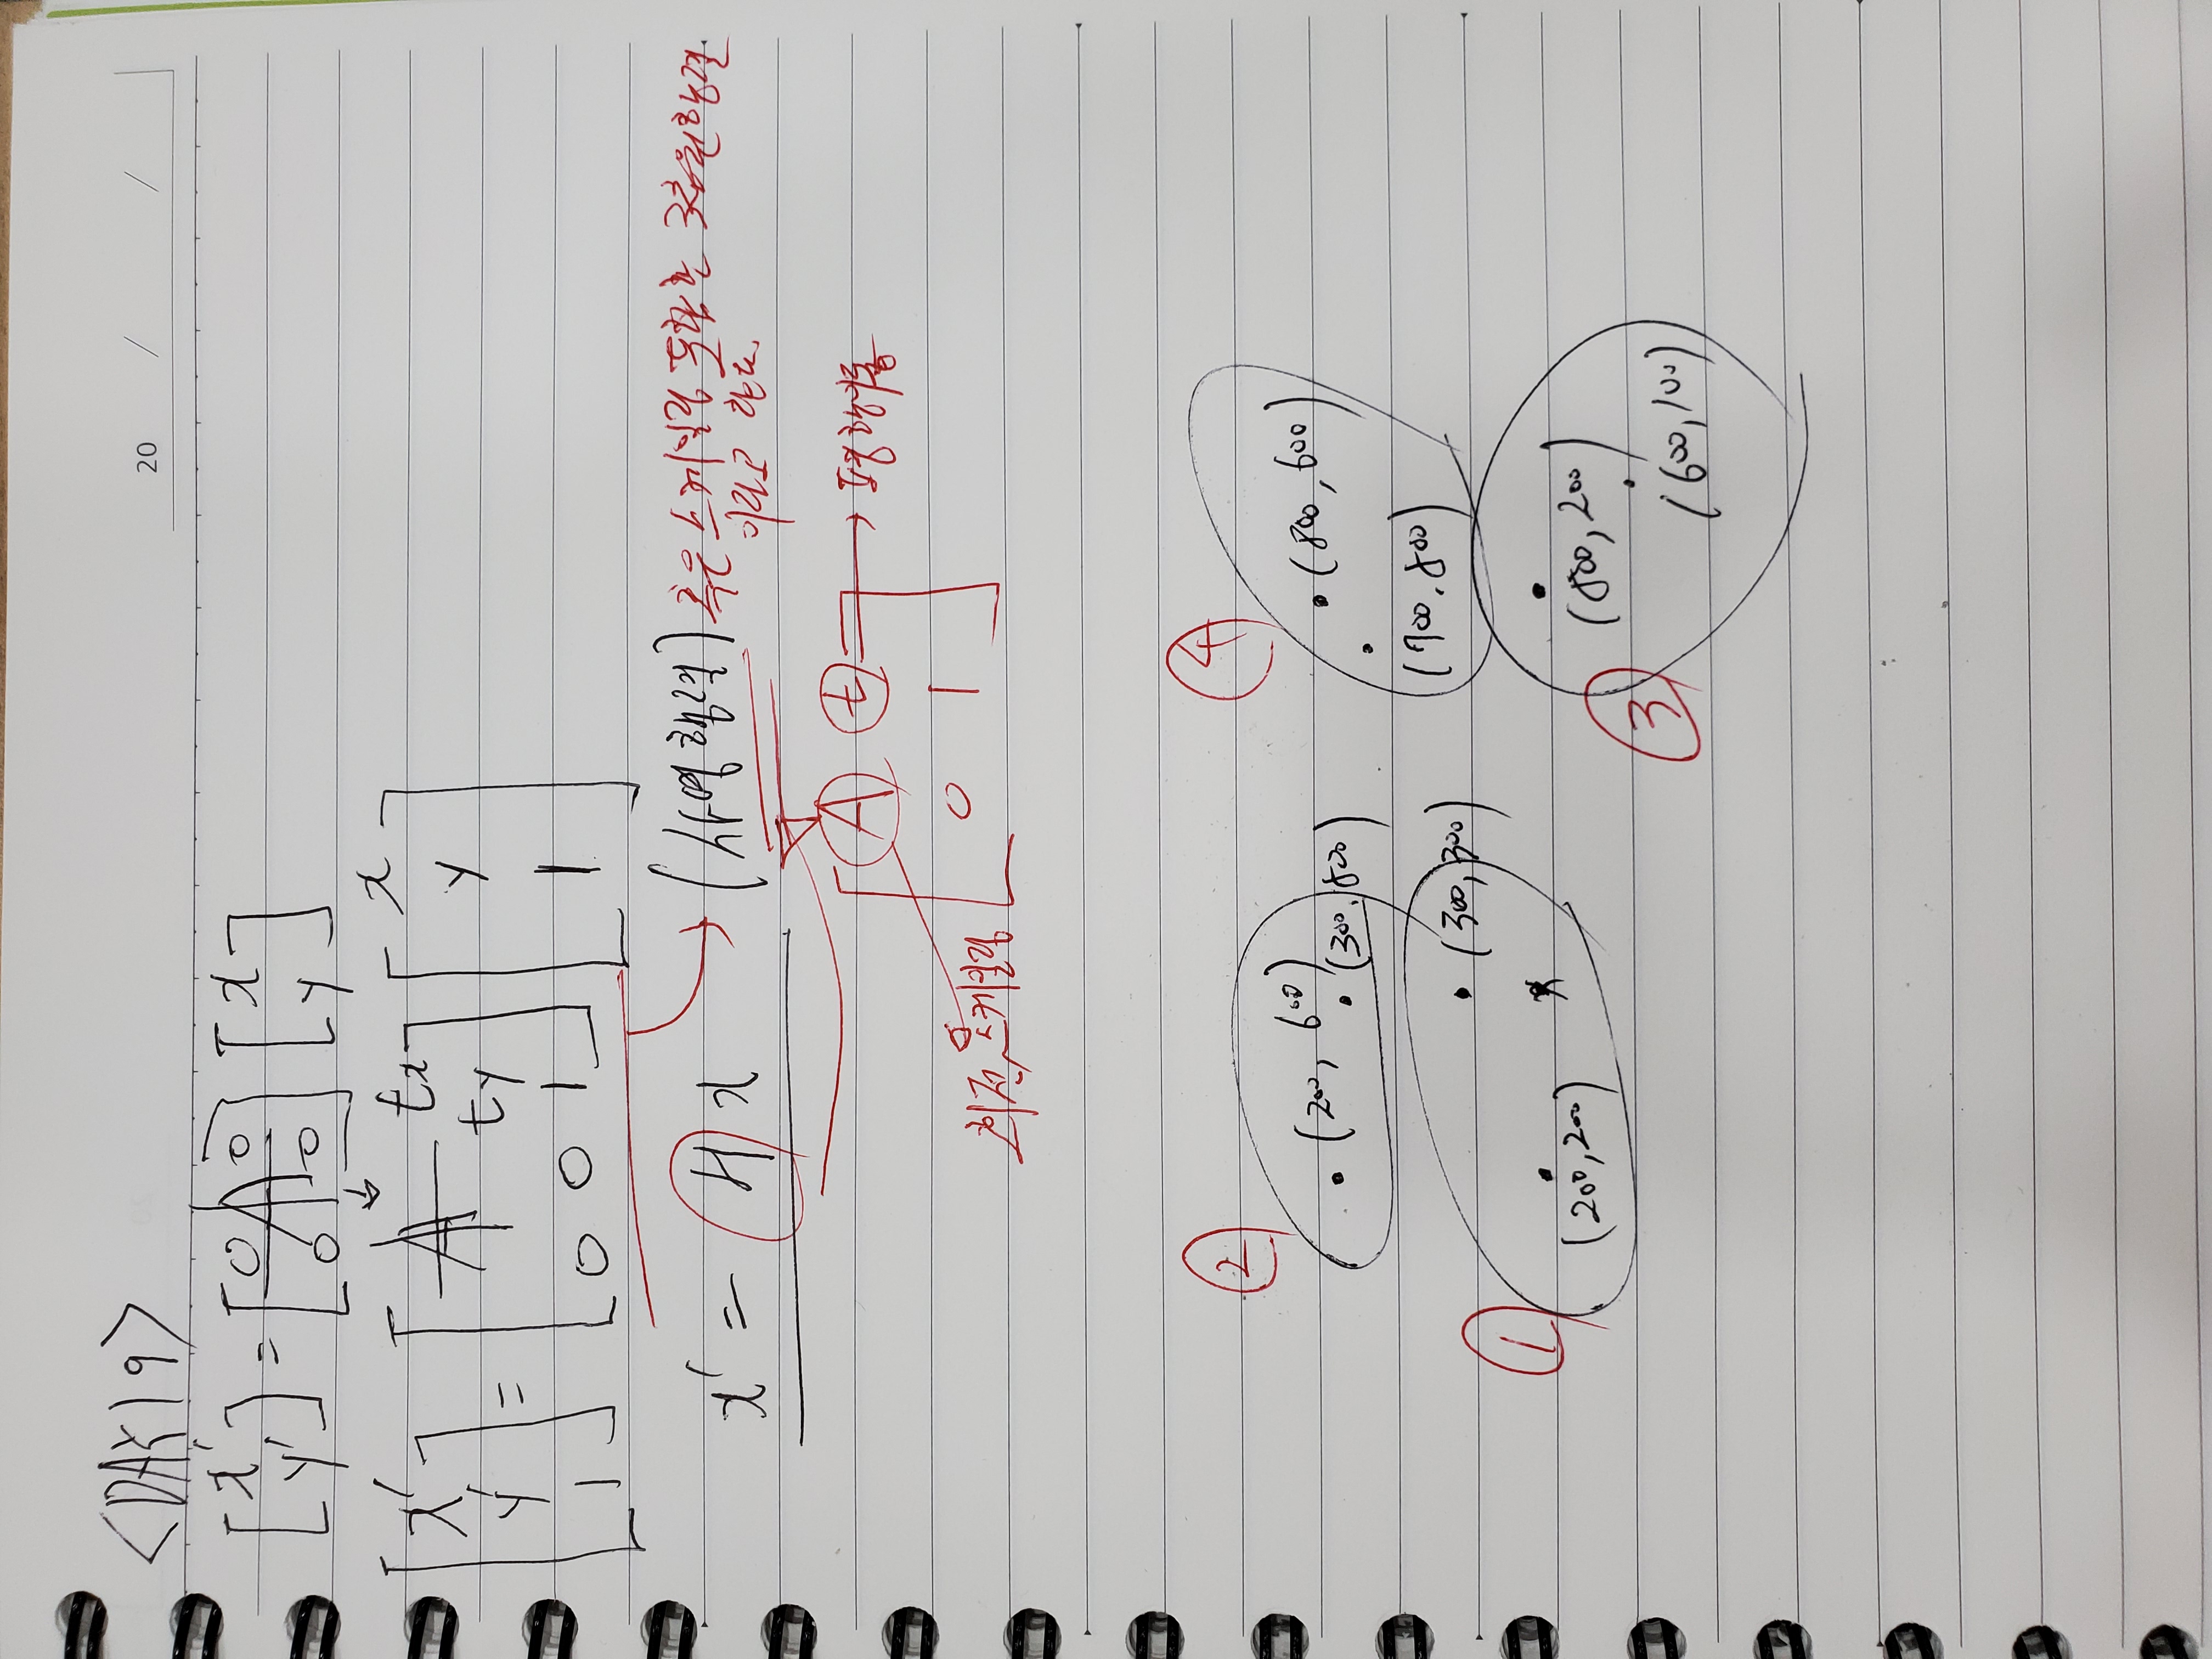 <DAY19>
20 / /
[x' y'] = [0 0 A 0 0] [x y]
↓
[x' y' 1] = [A tx ty 0 0 1] [x y 1]
x' = H x → (사영행렬) 혹은 스케일링 포함한 3차원행렬
이라고 한다.
[A t → 평행이동
0 1]
회전, 스케일링
②
④
(200, 600)
(800, 600)
(300, 800)
(700, 800)
(300, 300)
①
(200, 200) x
(800, 200)
③
(600, 100)